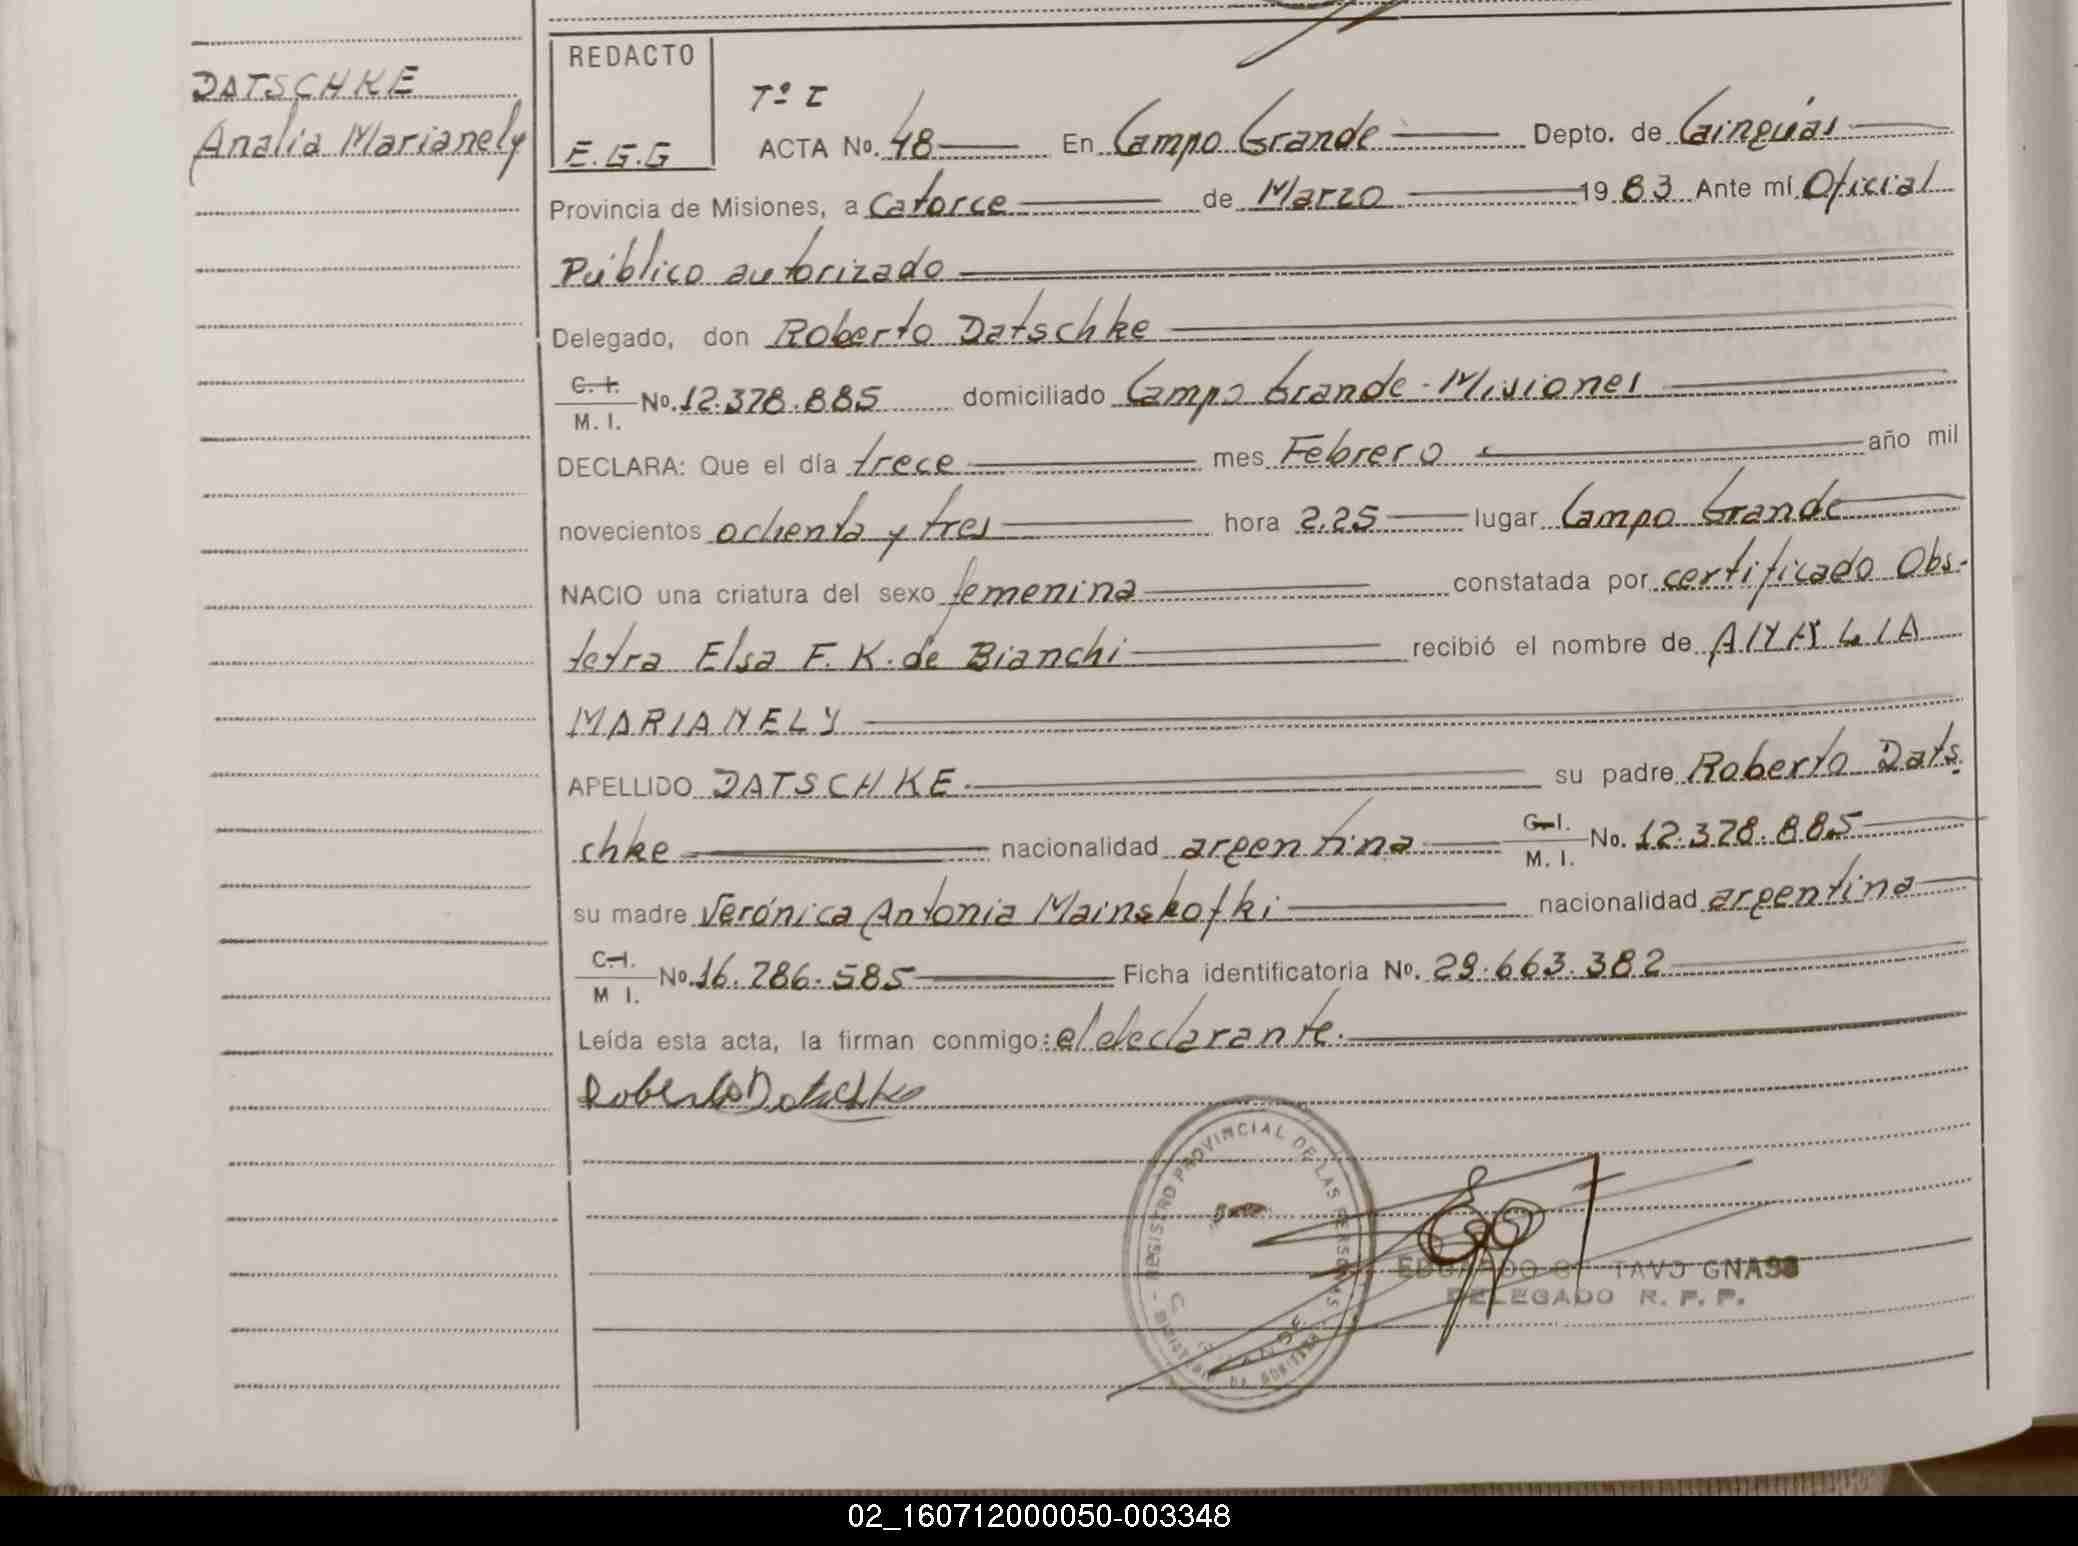 DATSCHKE
Analia Marianely
REDACTO
E.G.G
Tº I
ACTA No. 48 En Campo Grande Depto. de Cainguás
Provincia de Misiones, a Catorce de Marzo 1983 Ante mí Oficial
Público autorizado
Delegado, don Roberto Datschke
C. I.
M. I.
No. 12.378.885 domiciliado Campo Grande - Misiones
DECLARA: Que el día trece mes Febrero año mil
novecientos ochenta y tres hora 2.25 lugar Campo Grande
NACIO una criatura del sexo femenina constatada por certificado Obs-
tetra Elsa F. K. de Bianchi recibió el nombre de ANALIA
MARIANELY
APELLIDO DATSCHKE su padre Roberto Dats
chke nacionalidad argentina C.I. M. I. No. 12.378.885
su madre Verónica Antonia Mainskofki nacionalidad argentina
C.I.
M I.
No. 16.786.585 Ficha identificatoria No. 29.663.382
Leída esta acta, la firman conmigo: el declarante.
Roberto Datschke
REGISTRO PROVINCIAL DE LAS PERSONAS
EDUARDO GUSTAVO GNASS
DELEGADO R. P. P.
02_160712000050-003348